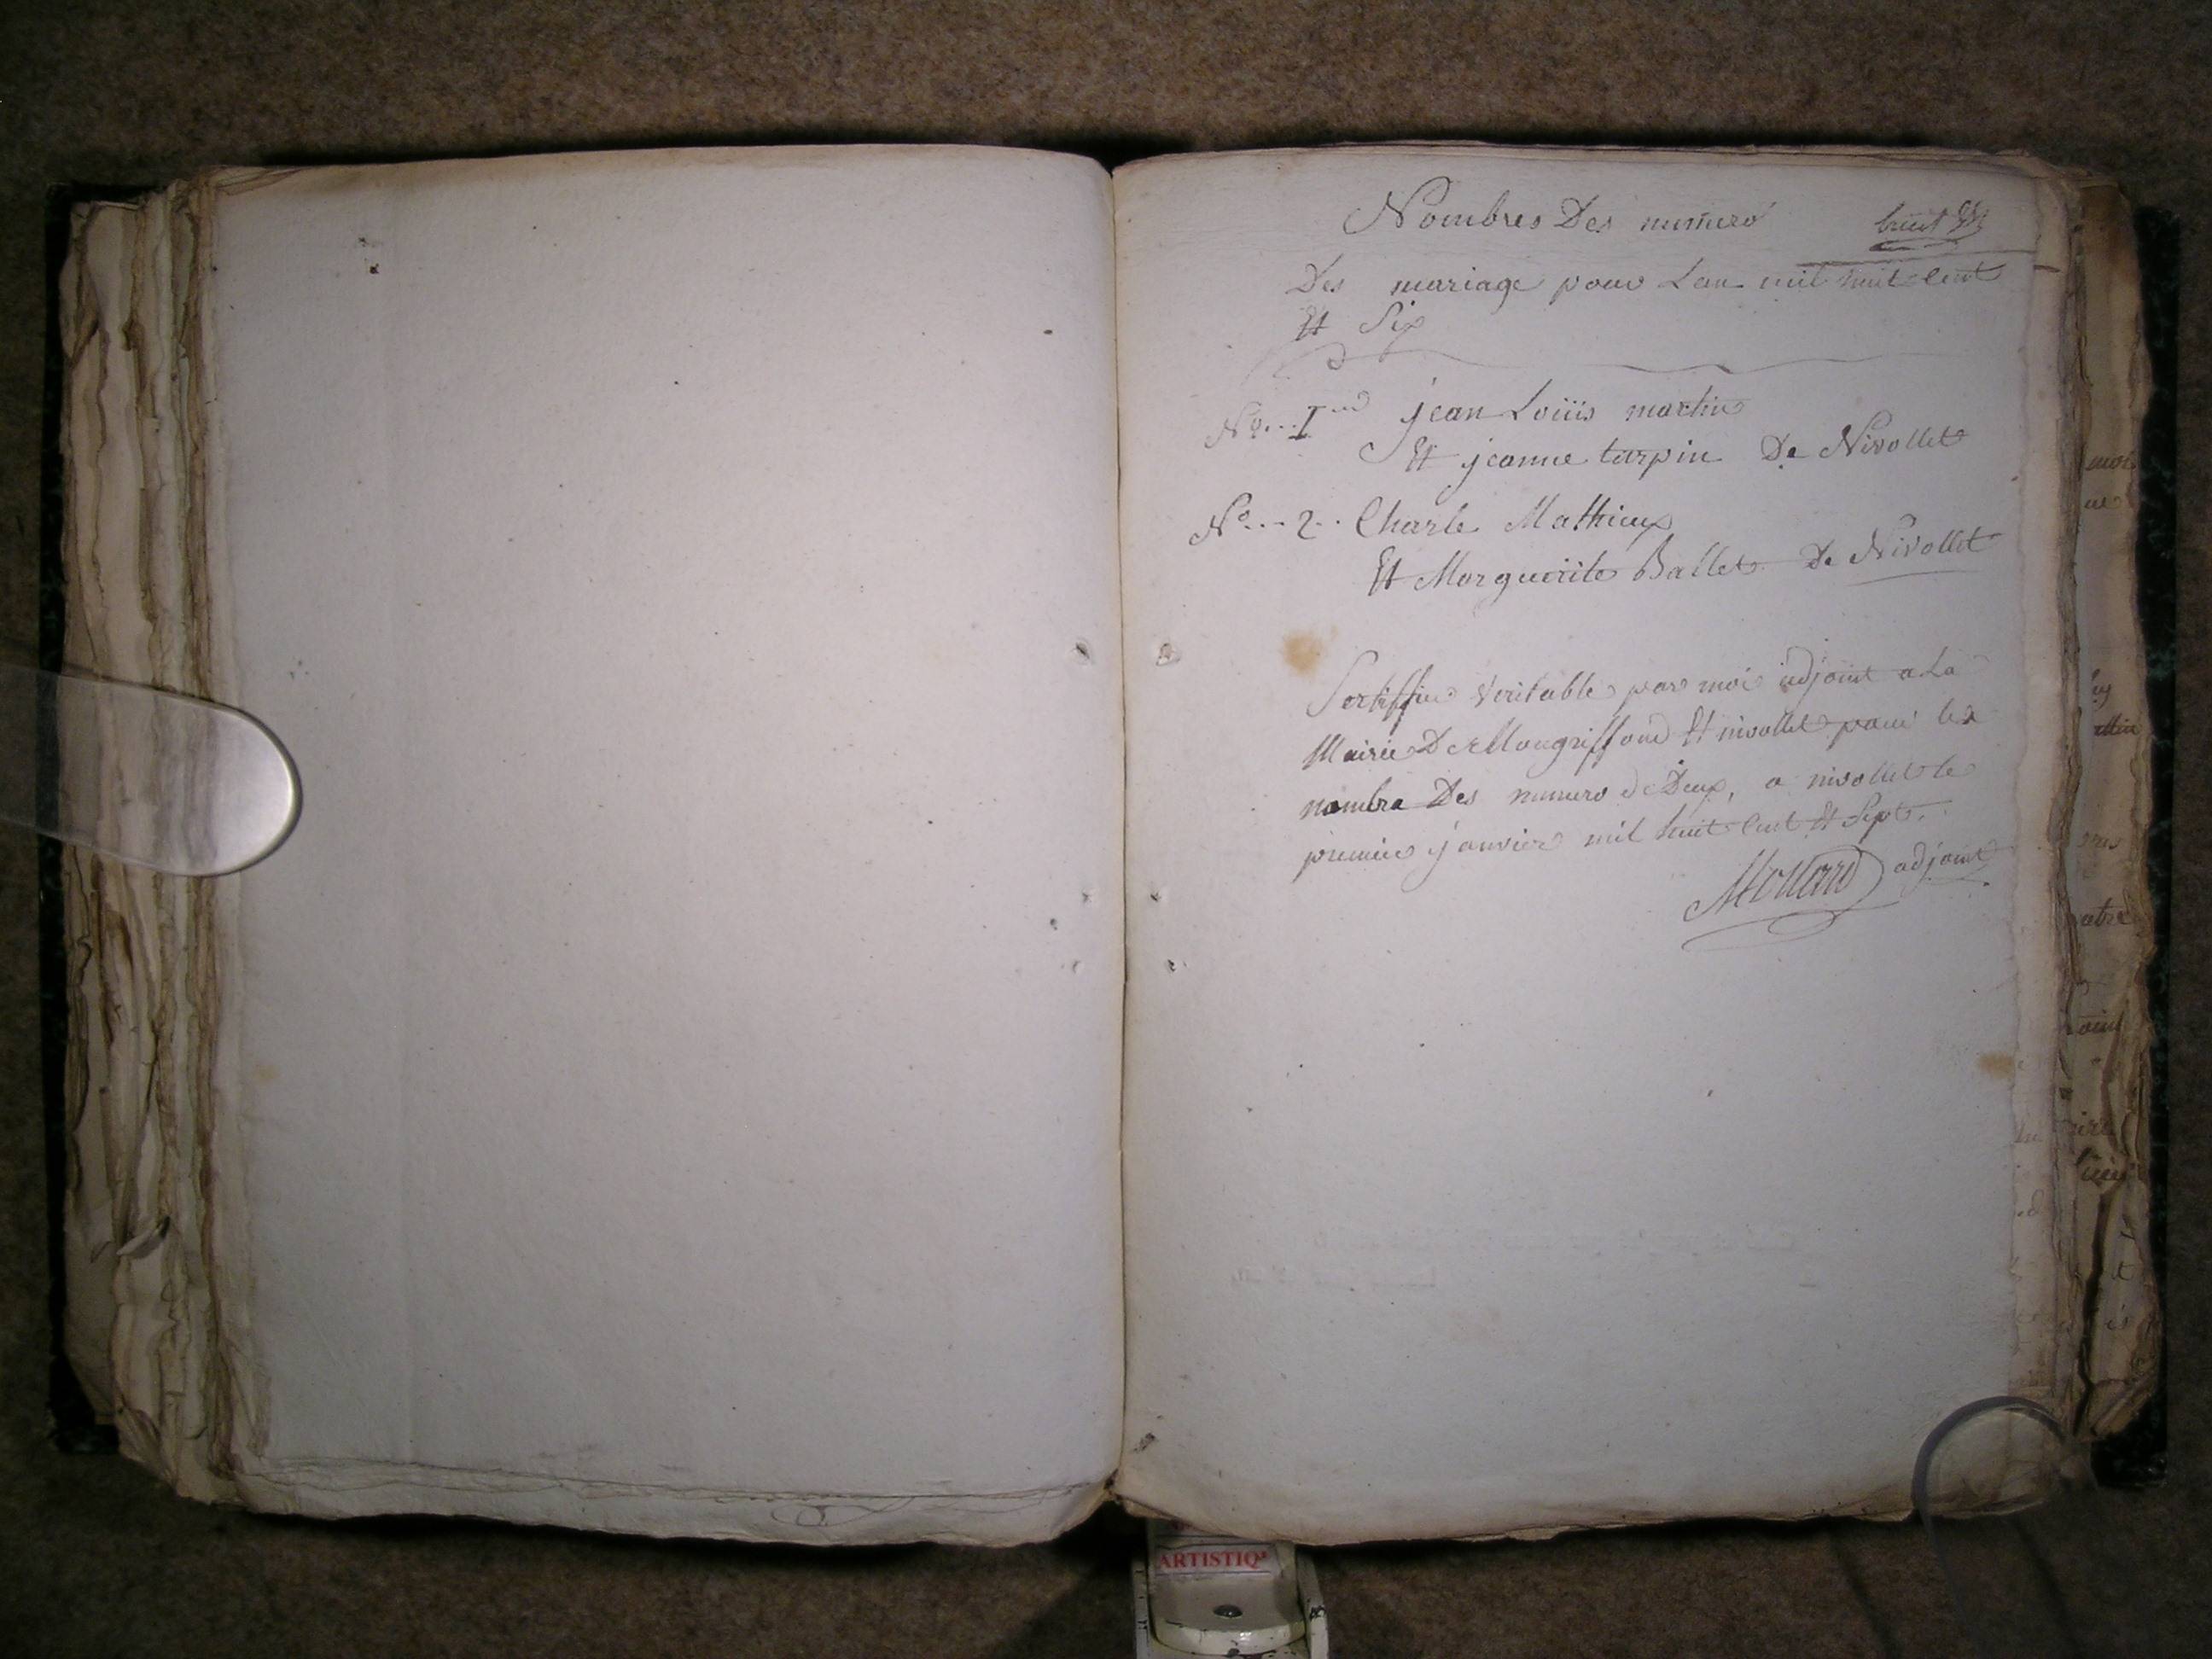 Nombres Des numero
huit
Des mariage pour Lan mil huit cent
Et Six
No...I jean Loüis martin
Et jeanne turpin De Nivollet
No...2.. Charle Mathieux
Et Morguerite Ballet De Nivollet
Sertiffiee veritable par moi adjoint a La
Mairie De Mongriffond Et nivollet pour les
nombre Des numero de Deux, a nivollet le
premier janvier mil huit Cent Et Sept.
Mollard adjoint
ARTISTIQ